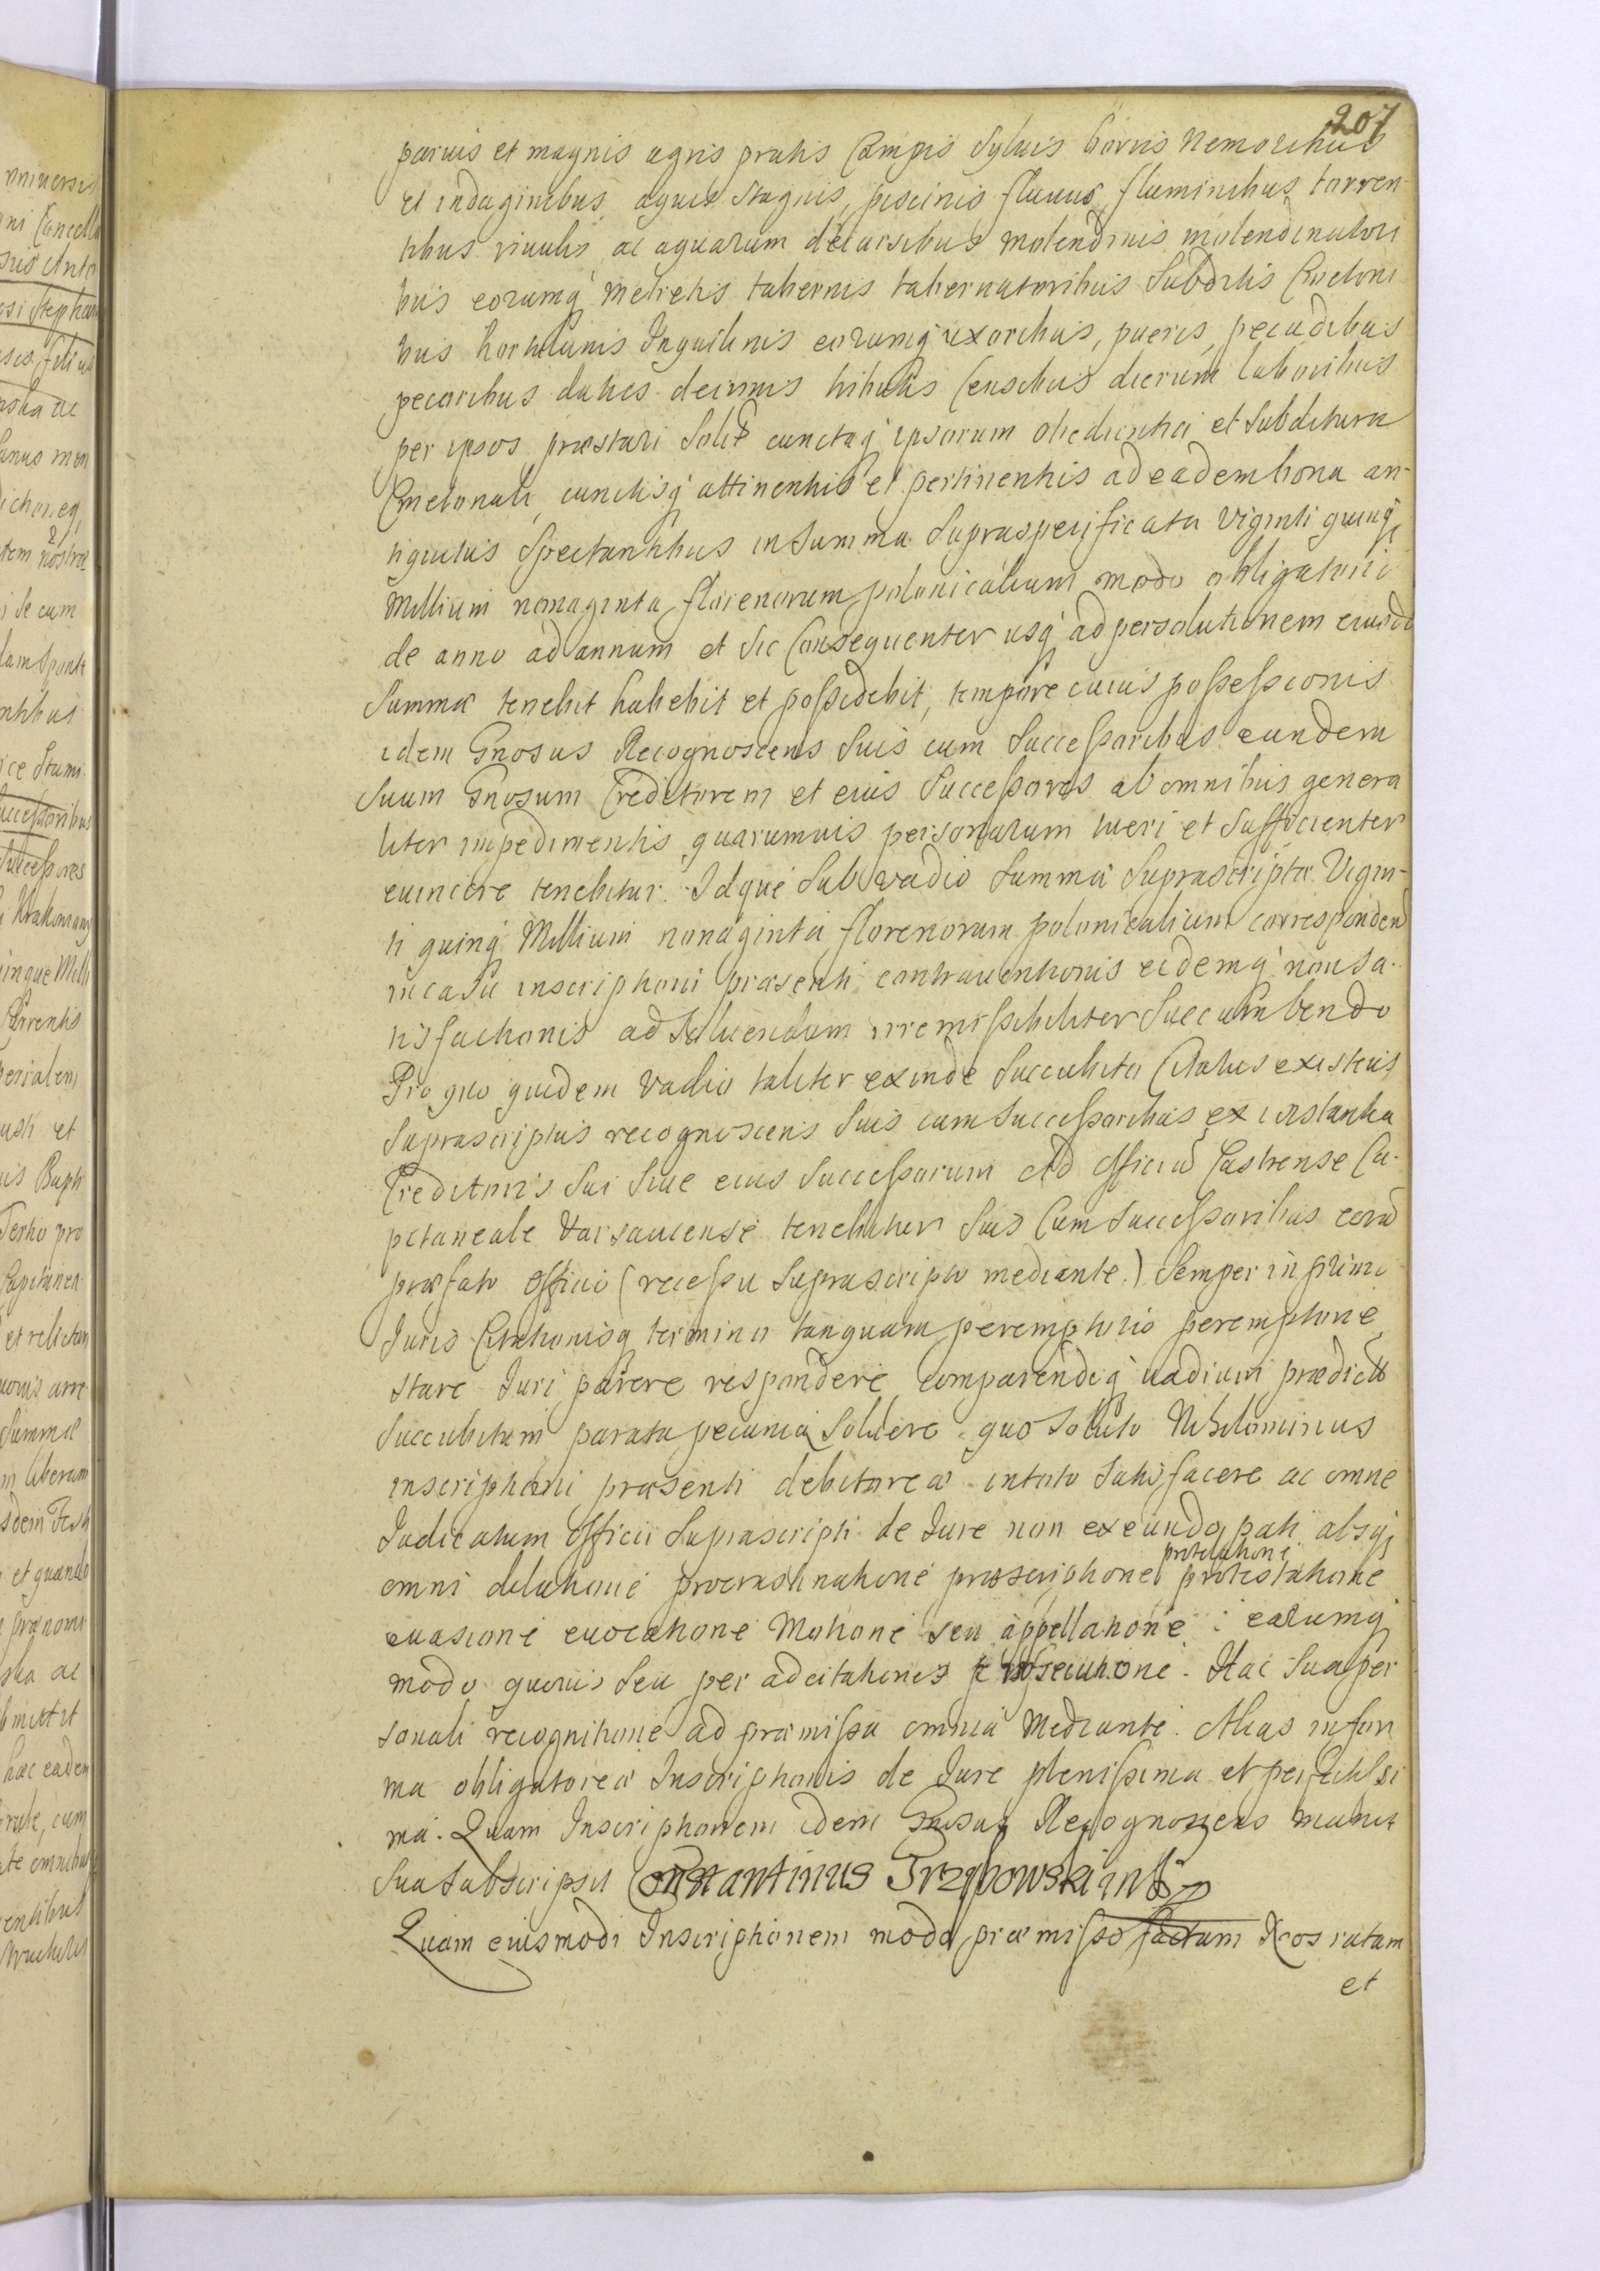 207
paruis et magnis agris pratis Campis Syluis borris Nemoribus
et indaginibus aquis stagnis, piscinis fluuiis fluminibus torren-
tibus riuulis ac aquarum decursibus molendinis molendinatori
bus eorumq metretis tabernis tabernatoribus Subditis Cmetoni
bus hortulanis Inquilinis eorumq uxoribus, pueris, pecudibus
pecoribus datiis decimis tributis Censibus dierum laboribus
per ipsos præstari Solit cunctaq ipsorum obedientia et Subditura
Cmetonali, cunctisq attinentiis et pertinentiis ad eadem bona an-
tiquitus Spectantibus in Summa Supraspecificata Viginti quinq
Millium nonaginta florenorum polonicalium modo obligatorio
de anno ad annum et sic Consequenter usq ad persolutionem eiusd
Summæ tenebit habebit et possidebit, tempore cuius possessionis
idem Gnosus Recognoscens Suis cum Successoribus eundem
Suum Gnosum Creditorem et eius Successores ab omnibus genera
liter impedimentis quarumuis personarum tueri et Sufficienter
euincere tenebitur. Idque Sub vadio Summæ Suprascriptæ Vigin-
ti quinq Millium nonaginta florenorum polonicalium correspondend
in casu inscriptioni præsenti contrauentionis eidemq non sa-
tisfactionis ad Soluendum irremissibiliter Succumbendo
Pro quo quidem vadio taliter exinde Succubito Citatus existens
Suprascriptus recognoscens Suis cum Successoribus ex instantia
Creditoris Sui Siue eius Successorum Ad Officiu Castrense Ca-
pitaneale Varsauiense tenebitur Suis Cum Successoribus coram
præfato Officio (recessu Suprascripto mediante.) Semper in primo
Iuris Citationisq termino tanquam peremptorio peremptorie
stare Iuri parere respondere comparendiq vadium prædict
Succubitum parata pecunia Soluere. quo Soluto Nihilominus
inscriptioni præsenti debitoreæ intoto Satisfacere ac omne
Iudicatum Officii Suprascripti de Iure non exeundo pati absq
protelatione
omni dilatione procrastinatione præscriptione protestatione
euasione euocatione Motione seu appellatione: earumq
modo quouis Seu per adcitationes prosecutione. Hac Sua per
sonali recognitione ad præmissa omnia Mediante. Alias in for
ma obligatoreæ Inscriptionis de Iure plenissima et perfectissi
ma. Quam Inscriptionem idem Gnosus Recognoscens manu
Sua Subscripsit Constantinus Trzybowski mp
Quam eiusmodi Inscriptionem modo præmisso factam Rcos ratam
et